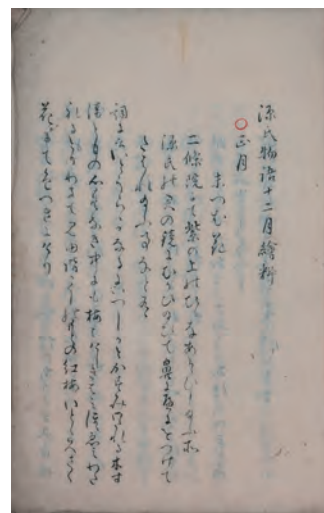 源氏物語十二月繪料
○正月
末つむ花
二條院にて紫の上のひゐなあそひし給ふ所
源氏の君の鏡にむかひ給ひて鼻に紅をつけて
詞に日いとうらゝかなるにいつしかとかすみわたれる木す
ゑともの心もとなき中にも梅はけしきはみほゝゑみわた
れるとりわきて見ゆ階かくしのもとの紅梅いとゝくさく
花にて色つきにけり